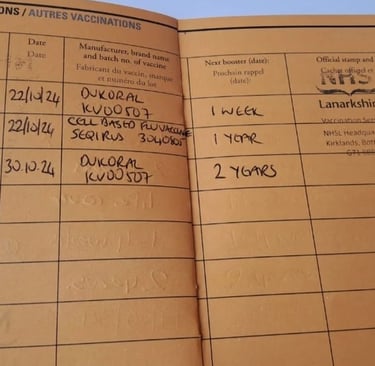 ONS / AUTRES VACCINATIONS
Date
Date
Manufacturer, brand name
and batch no. of vaccine
Fabricant du vaccin, marque
et numéro du lot
Next booster (date):
Prochain rappel
(date):
Official stamp and
Cachet officiel et
NHS
22/10/24
DUKORAL
KV00507
1 WEEK
Lanarkshir
Vaccination Ser
22/10/24
CELL BASED FLU VACCINE
SEQIRUS
1 YEAR
NHSL Headqua
Kirklands, Both
G71
30.10.24
DUKORAL
KV00507
2 YEARS